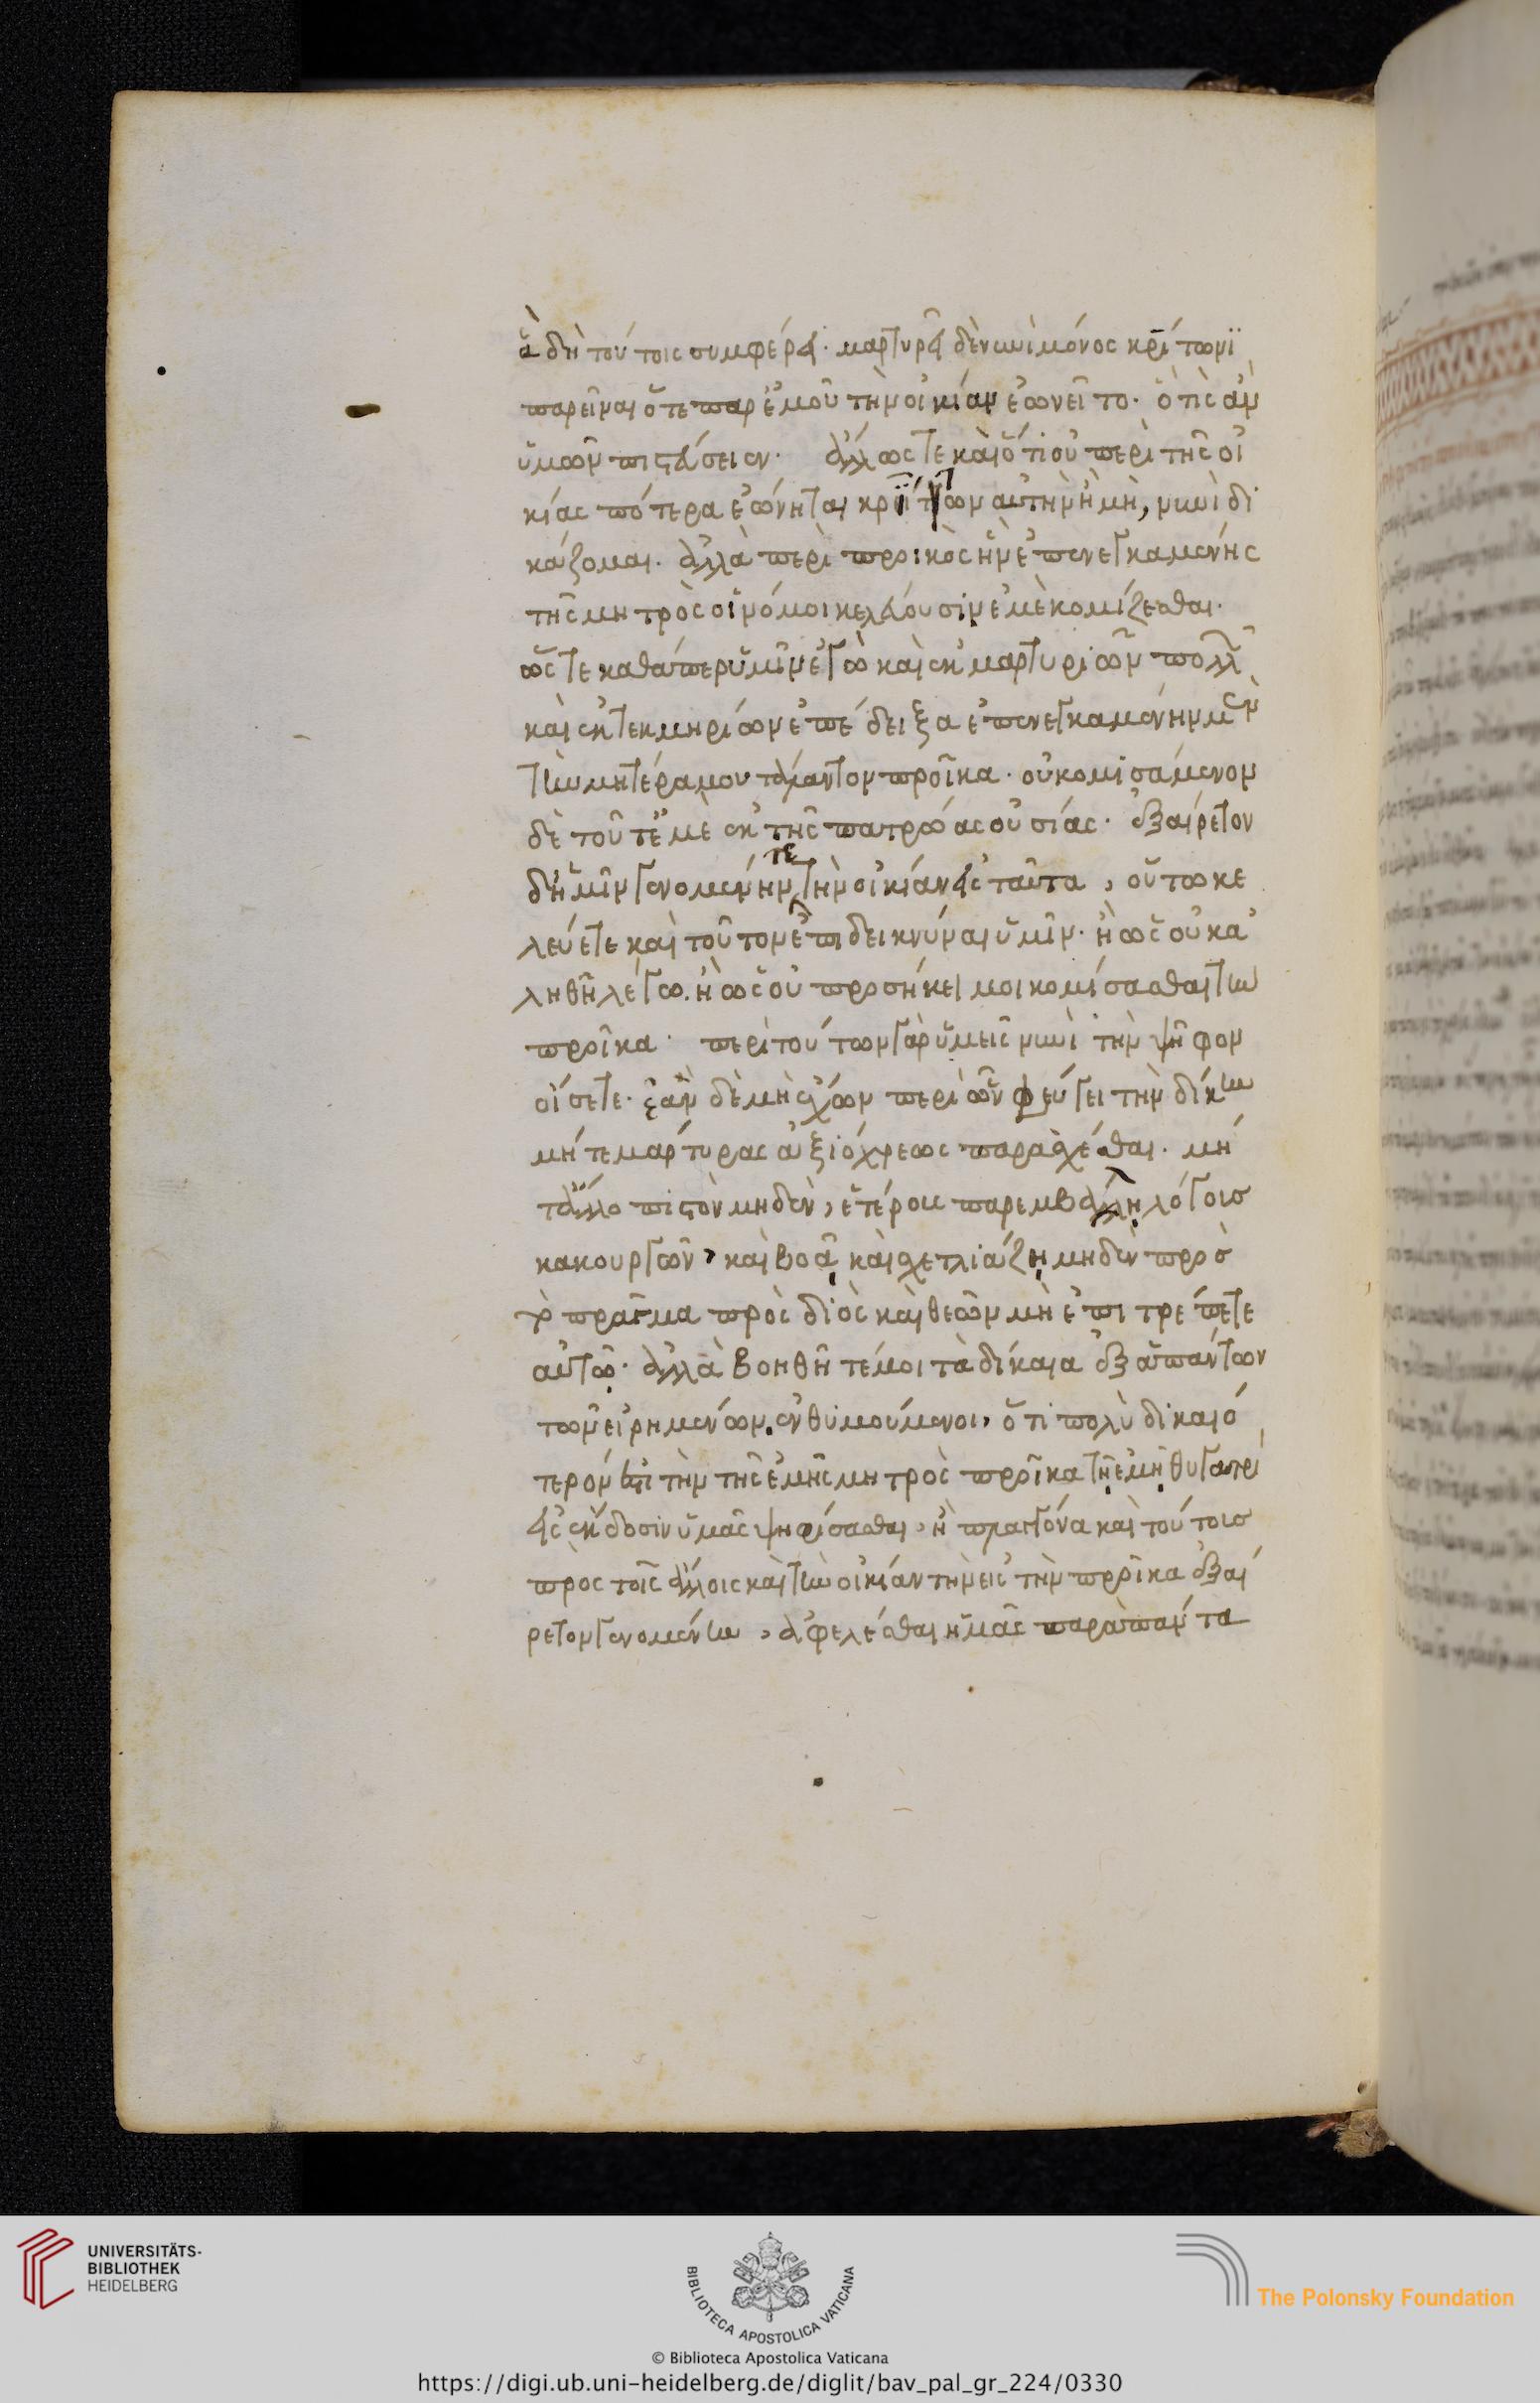 ἃ δὴ τούτοις συμφέρει. μαρτυρεῖ δὲ νυνὶ μόνος κρίτωνι
παρεῖναι ὅτε παρ ἐμοῦ τὴν οἰκίαν ἐωνεῖτο. ὃ τίς ἂν
ὑμῶν πιστεύσειεν. ἄλλως τε καὶ ὅτι οὐ περὶ τῆς οἰ
κίας πότερα ἐώνηται κρίτων αὐτὴν ἢ μὴ, νυνὶ δι
κάζομαι. ἀλλὰ περὶ προικὸς ἣν ἐπενεγκαμένης
τῆς μητρὸς οἱ νόμοι κελεύουσιν ἐμὲ κομίζεσθαι.
ὥστε καθάπερ ὑμῖν ἐγὼ καὶ ἐκ μαρτυριῶν πολλῶν
καὶ ἐκ τεκμηρίων ἐπέδειξα ἐπενεγκαμένην μὲν
τὴν μητέρα μου τάλαντον προῖκα. οὐ κομισάμενον
δὲ τοῦτ ἐμὲ ἐκ τῆς πατρῴας οὐσίας. ἐξαίρετον
δ ἡμῖν γενομένην τὲ τὴν οἰκίαν εἰς ταῦτα, οὕτω κε
λεύετε καὶ τοῦτον ἐπιδεικνύναι ὑμῖν. ἢ ὡς οὐκ ἀ
ληθῆ λέγω. ἢ ὡς οὐ προσήκει μοι κομίσασθαι τὴν
προῖκα. περὶ τούτων γὰρ ὑμεῖς νυνὶ τὴν ψῆφον
οἴσετε. ἐὰν δὲ μὴ ἔχων περὶ ὧν φεύγει τὴν δίκην
μήτε μάρτυρας ἀξιόχρεως παρασχέσθαι. μή
τ ἄλλο πιστὸν μηδὲν, ἑτέρους παρεμβάλλῃ λόγους
κακουργῶν, καὶ βοᾷ καὶ σχετλιάζῃ μηδὲν πρὸσ
τὸ πρᾶγμα πρὸς διὸς καὶ θεῶν μὴ ἐπιτρέπετε
αὐτῷ. ἀλλὰ βοηθῆτέ μοι τὰ δίκαια ἐξ ἁπάντων
τῶν εἰρημένων. ἐνθυμούμενοι, ὅτι πολὺ δικαιό
τερόν ἐστι τὴν τῆς ἐμῆς μητρὸς προῖκα τῇ ἐμῇ θυγατρὶ
εἰς ἔκδοσιν ὑμᾶς ψηφίσασθαι, ἢ πλαγγόνα καὶ τούτουσ
πρὸς τοῖς ἄλλοις καὶ τὴν οἰκίαν τὴν εἰς τὴν προῖκα ἐξαί
ρετον γενομένην, ἀφελέσθαι ἡμᾶς παρὰ πάντα
UNIVERSITÄTS-
BIBLIOTHEK
HEIDELBERG
BIBLIOTECA APOSTOLICA VATICANA
The Polonsky Foundation
© Biblioteca Apostolica Vaticana
https://digi.ub.uni-heidelberg.de/diglit/bav_pal_gr_224/0330